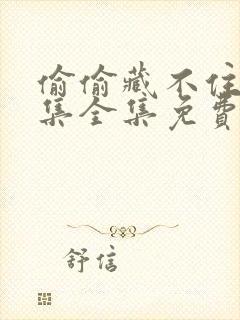 偷偷藏不住
集全集免费
舒信